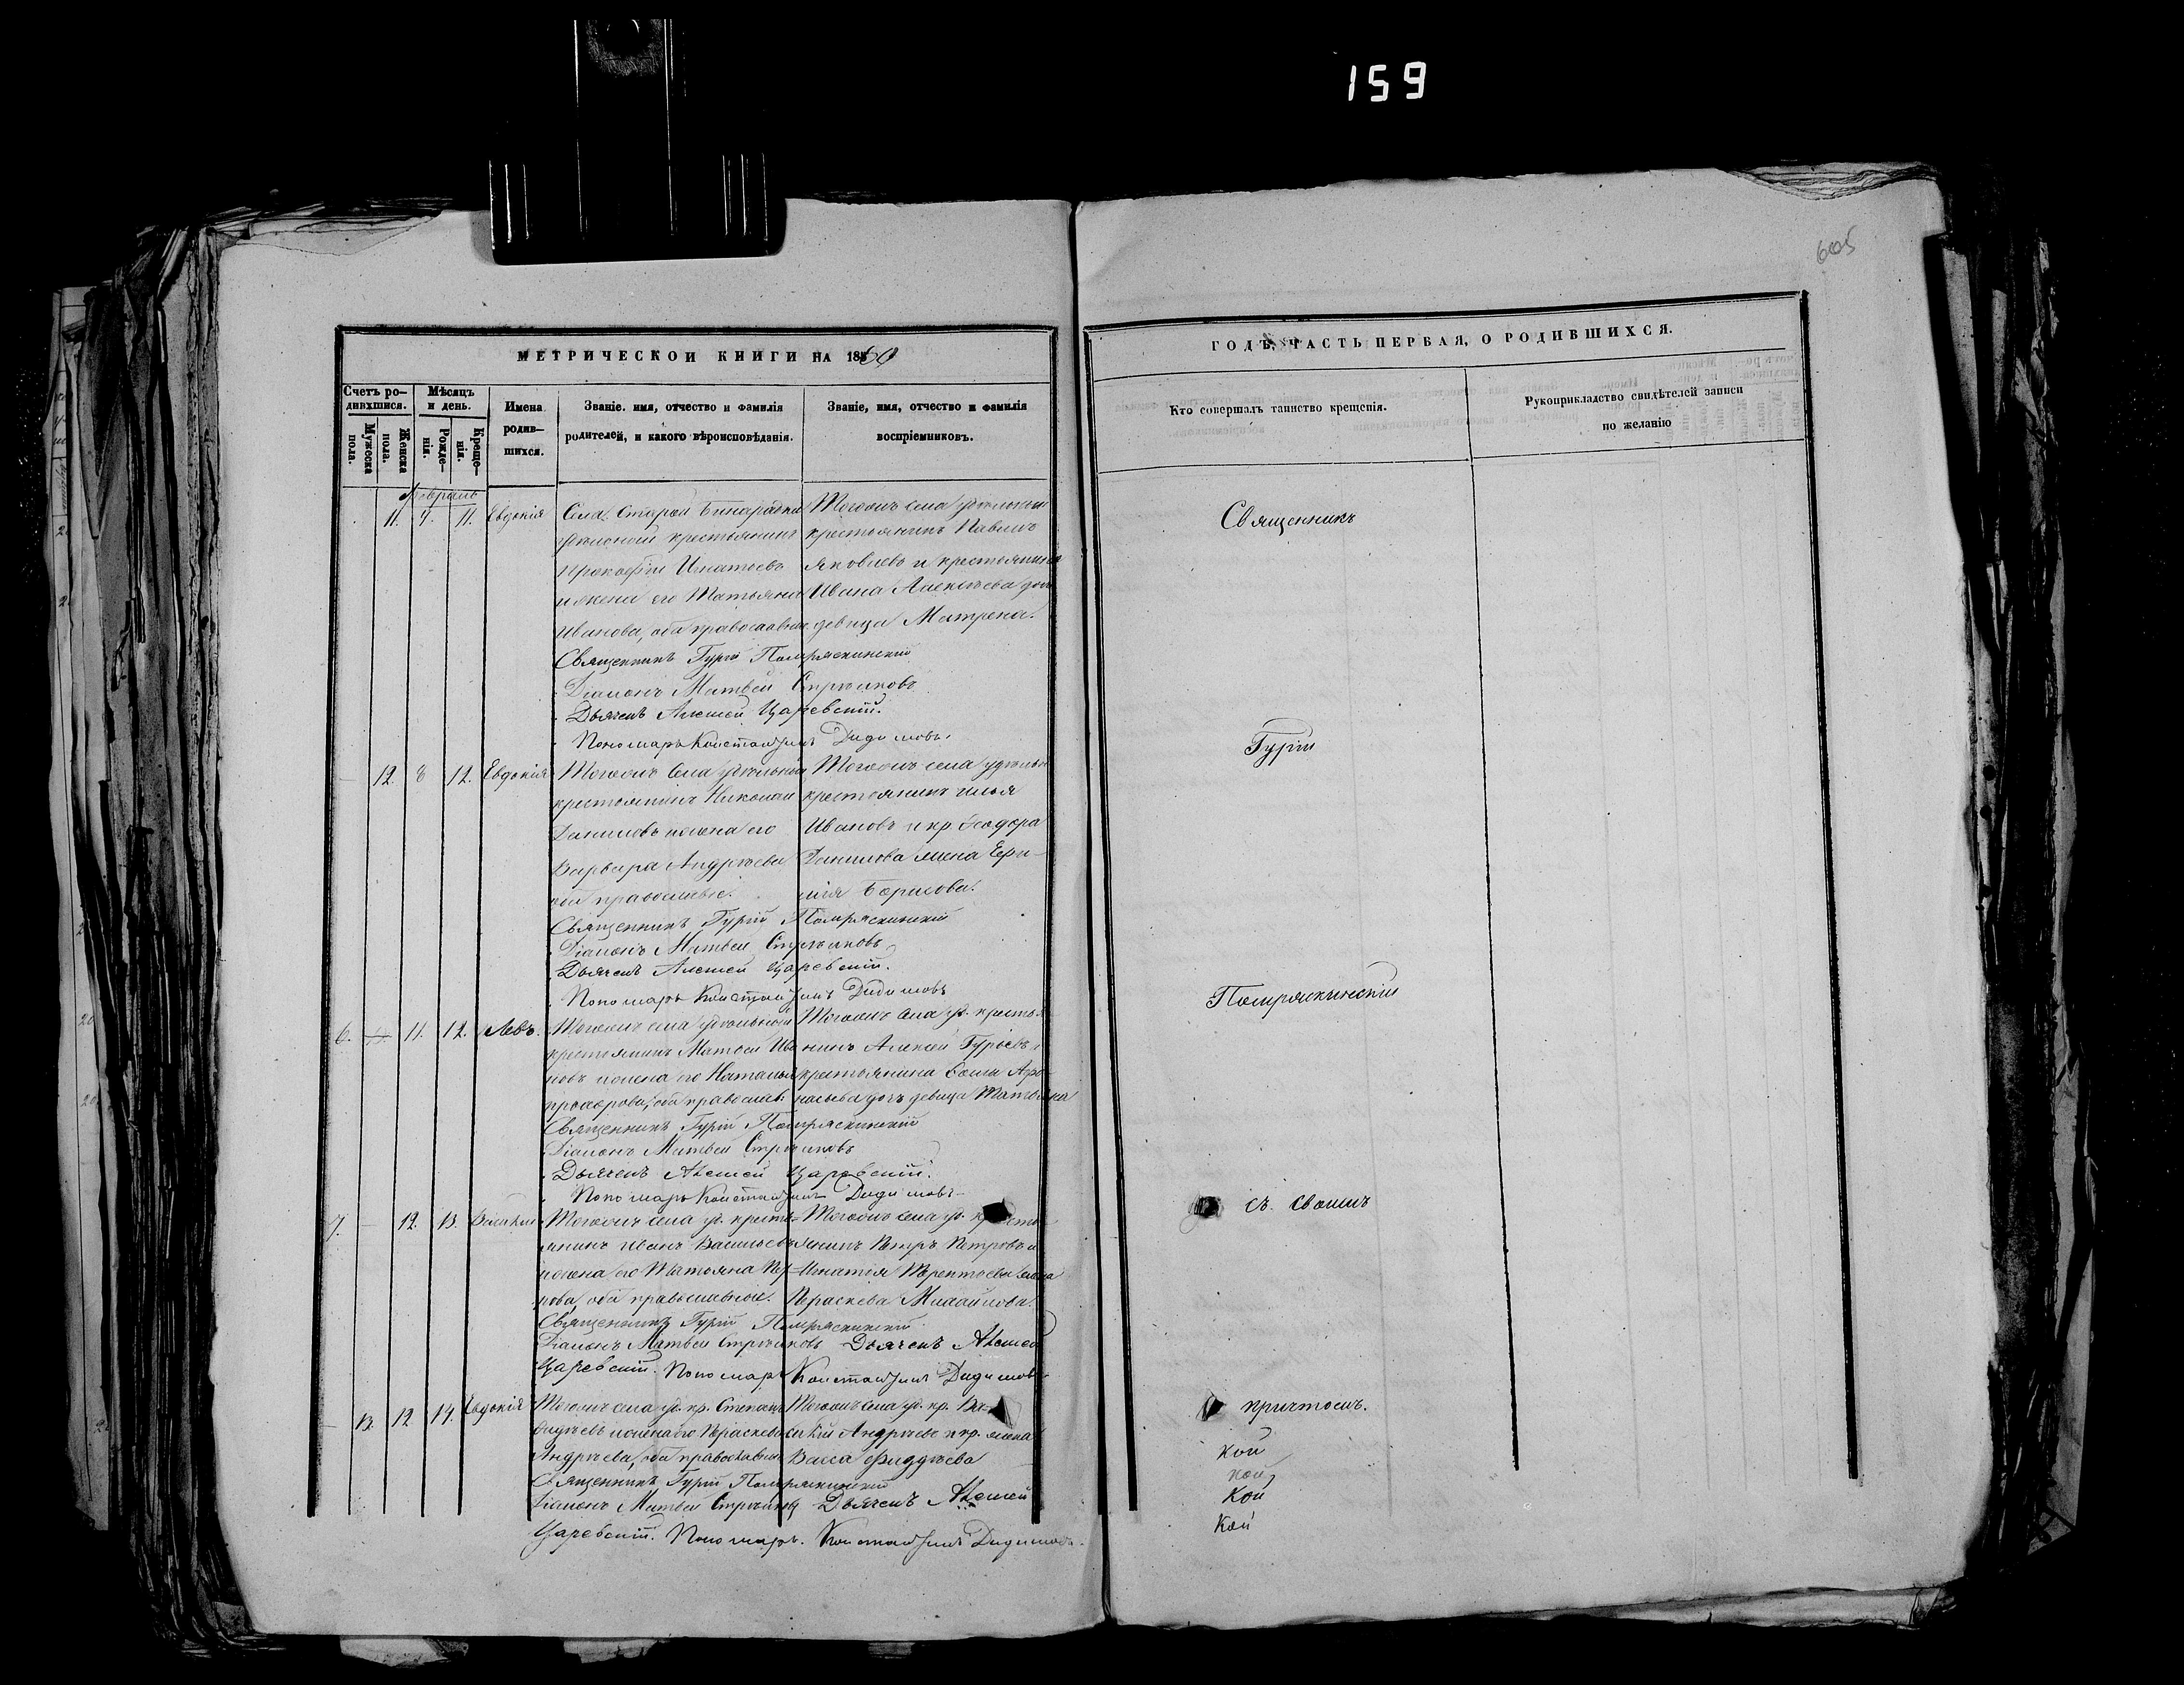 159
605
МЕТРИЧЕСКОЙ КНИГИ НА 1860
Счетъ родившихся.
Мѣсяцъ и день.
Имена родившихся.
Званіе, имя, отчество и фамилія родителей, и какого вѣроисповѣданія.
Званіе, имя, отчество и фамилія воспріемниковъ.
Мужеска пола.
Женска пола.
Рожденія.
Крещенія.
Февраль
11. 4. 11. Евдокія
Села Старой Бинарадки
удѣльной крестьянинъ
Прокофій Игнатьевъ
и жена его Татьяна
Иванова, оба православные.
Тогожъ села удѣльной
крестьянинъ Павелъ
Яковлевъ и крестьянина
Ивана Алексѣева дочь
девица Матрена.
Священникъ Гурій Помряскинскій
Діаконъ Матвей Стрелковъ
Дьячекъ Алексей Царевскій.
Пономарь Константинъ Дидимовъ.
12. 8 12. Евдокія
Тогожъ села удѣльной
крестьянинъ Николай
Даниловъ и жена его
Варвара Андреева
оба православные.
Тогожъ села удѣльной
крестьянинъ Илья
Ивановъ и кр. Феодора
Данилова жена Ефи-
мія Борисова.
Священникъ Гурій Помряскинскій
Діаконъ Матвей Стрелковъ
Дьячекъ Алексей Царевскій.
Пономарь Константинъ Дидимовъ
6. 11. 12. Левъ.
Тогожъ села удѣльной
крестьянинъ Матвей Ива-
новъ и жена его Наталья
оба православ.
Тогожъ села уд. крестья-
нинъ Алексей Гурьевъ и
крестьянина
дочь девица Татьяна
Священникъ Гурій Помряскинскій
Діаконъ Матвей Стрелковъ
Дьячекъ Алексей Царевскій.
Пономарь Константинъ Дидимовъ
7. 12. 13. Василій
Тогожъ села уд. кресть-
янинъ Иванъ Васильевъ
и жена его Татьяна Пет-
рова, оба православные.
Тогожъ села уд. кресть-
янинъ Петръ Петровъ и
Игнатія Терентьева жена
Параскева Михайлова.
Священникъ Гурій Помряскинскій
Діаконъ Матвей Стрелковъ Дьячекъ Алексей
Царевскій. Пономарь Константинъ Дидимовъ
13. 12 14. Евдокія
Тогожъ села уд. кр. Степанъ
и жена его Параскева
Андреева, оба православные
Тогожъ села уд. кр. Ва-
силій Андреевъ и кр. жена
Васса Фаддеева
Священникъ Гурій Помряскинскій
Діаконъ Матвей Стрелковъ Дьячекъ Алексей
Царевскій. Пономарь. Константинъ Дидимовъ.
ГОДЪ, ЧАСТЬ ПЕРВАЯ, О РОДИВШИХСЯ.
Кто совершалъ таинство крещенія.
Рукоприкладство свидѣтелей записи по желанію
Священникъ
Гурій
Помряскинскій
съ своимъ
причтомъ.
кой
кой
кой
кой